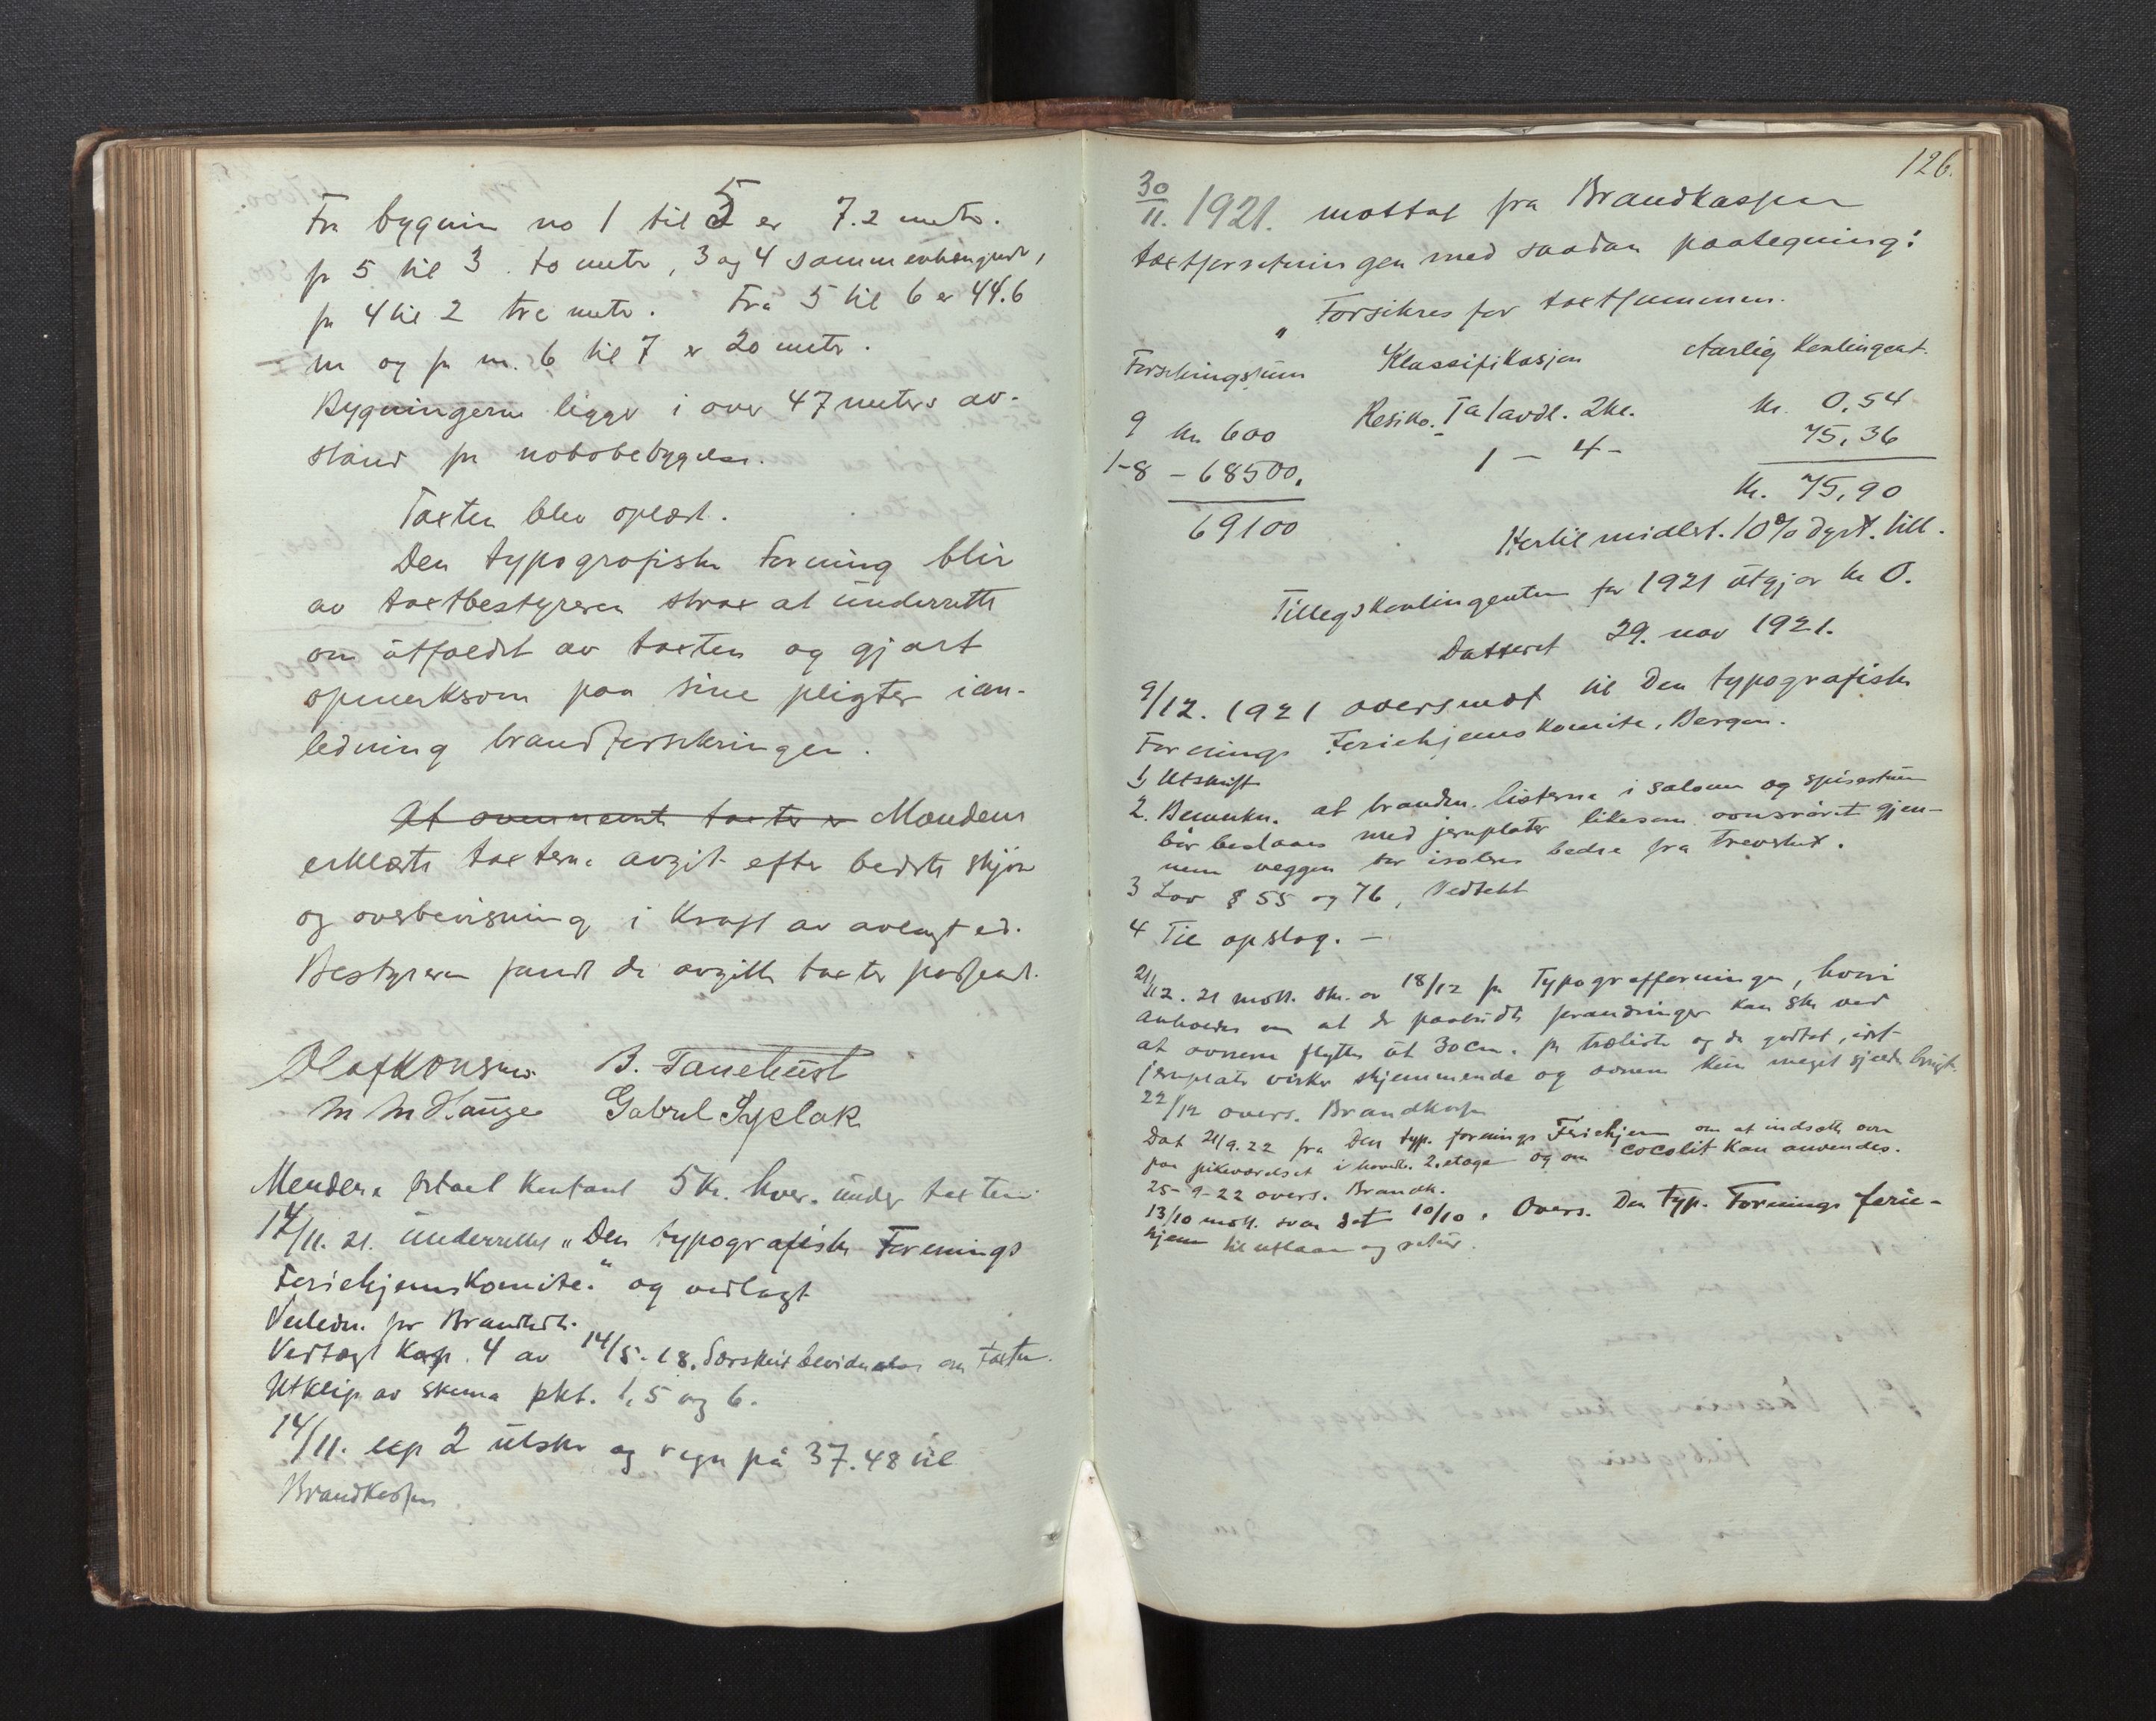 Fra bygnin no 1 til 5 er 7.2 metr.
fr 5 til 3. to metr, 3 og 4 sammenhængende,
fr 4 til 2 tre metr. Fra 5 til 6 er 44.6
m og fr nr. 6 til 7 er 20 metr.
Bygningerne ligger i over 47 meters av-
stand fra nabobebyggelse.
Taxten blev oplæst.
Den typografiske Forening blir
av taxtbestyreren strax at underrette
om utfaldet av taxten og gjort
opmerksom paa sine pligter i an-
ledning brandforsikringen.
At overnevnte taxter er Mændene
erklærte taxterne avgit efter bedste skjøn
og overbevisning i kraft av avlagt ed.
Bestyreren fandt de avgitte taxter passende.
B. Tanehust
M M Hauge Gabriel
Mændene betalt kontant 5 Kr. hver under taxten
14/11. 21. underrettet "Den typografiske Forenings
Feriehjemskomite." og vedlagt
Veiledn. for Brandtdt.
Vedtægt Kap. 4 av 14/5-18. Særskilt bevidnelse om taxten.
Utklip av skema pkt. 1, 5 og 6.
14/11. exp 2 utskr og regn på 37.48 til
Brandkassen
126.
30/11. 1921. mottat fra Brandkassen
taxtforretningen med saadan paategning:
" Forsikres for taxtsummen.
Forsikringssum Klassifikasjon Aarlig Kontingent.
9 kr. 600 Resiko. Ta 1 avdl. 2 kl. kr. 0.54
1-8 - 68500. 1 - 4 - 75,36
69100 Kr. 75,90
Hertil midlert. 10% dyrt. till.
Tillegskontingenten for 1921 utgjør kr 0.
Dateret 29. nov 1921.
9/12. 1921 oversendt til Den typografiske
Forenings Feriehjemskomite, Bergen.
1, Utskrift
2. Bemerkn. at brandm. listerne i salonen og spisestuen
bør beslaaes med jernplater likesom ovnsrøret gjen-
nem veggen bør isoleres bedre fra treverket.
3 Lov § 55 og 76, Vedtekt
4 Til opslag. -
21/12. 21 mott. skr. av 18/12 fra Typografforeningen, hvori
anholdes om at de paabudte forandringer kan ske ved
at ovnene flyttes ut 30 cm. fra trælister og de godtat, idet
jernplater virker skjemmende og ovnene kun meget sjelden brugt.
22/12 overs. Brandkassen
Dat 21/9.22 fra Den typ. forenings Feriehjem om at indsætte ovn
paa pikeværelset i hovedb. 2. etage og om cocolit kan anvendes.
25-9-22 overs. Brandk.
13/10 mott. svar dat 10/10. Overs. Den typ. Forenings ferie-
hjem til utlaan og retur.